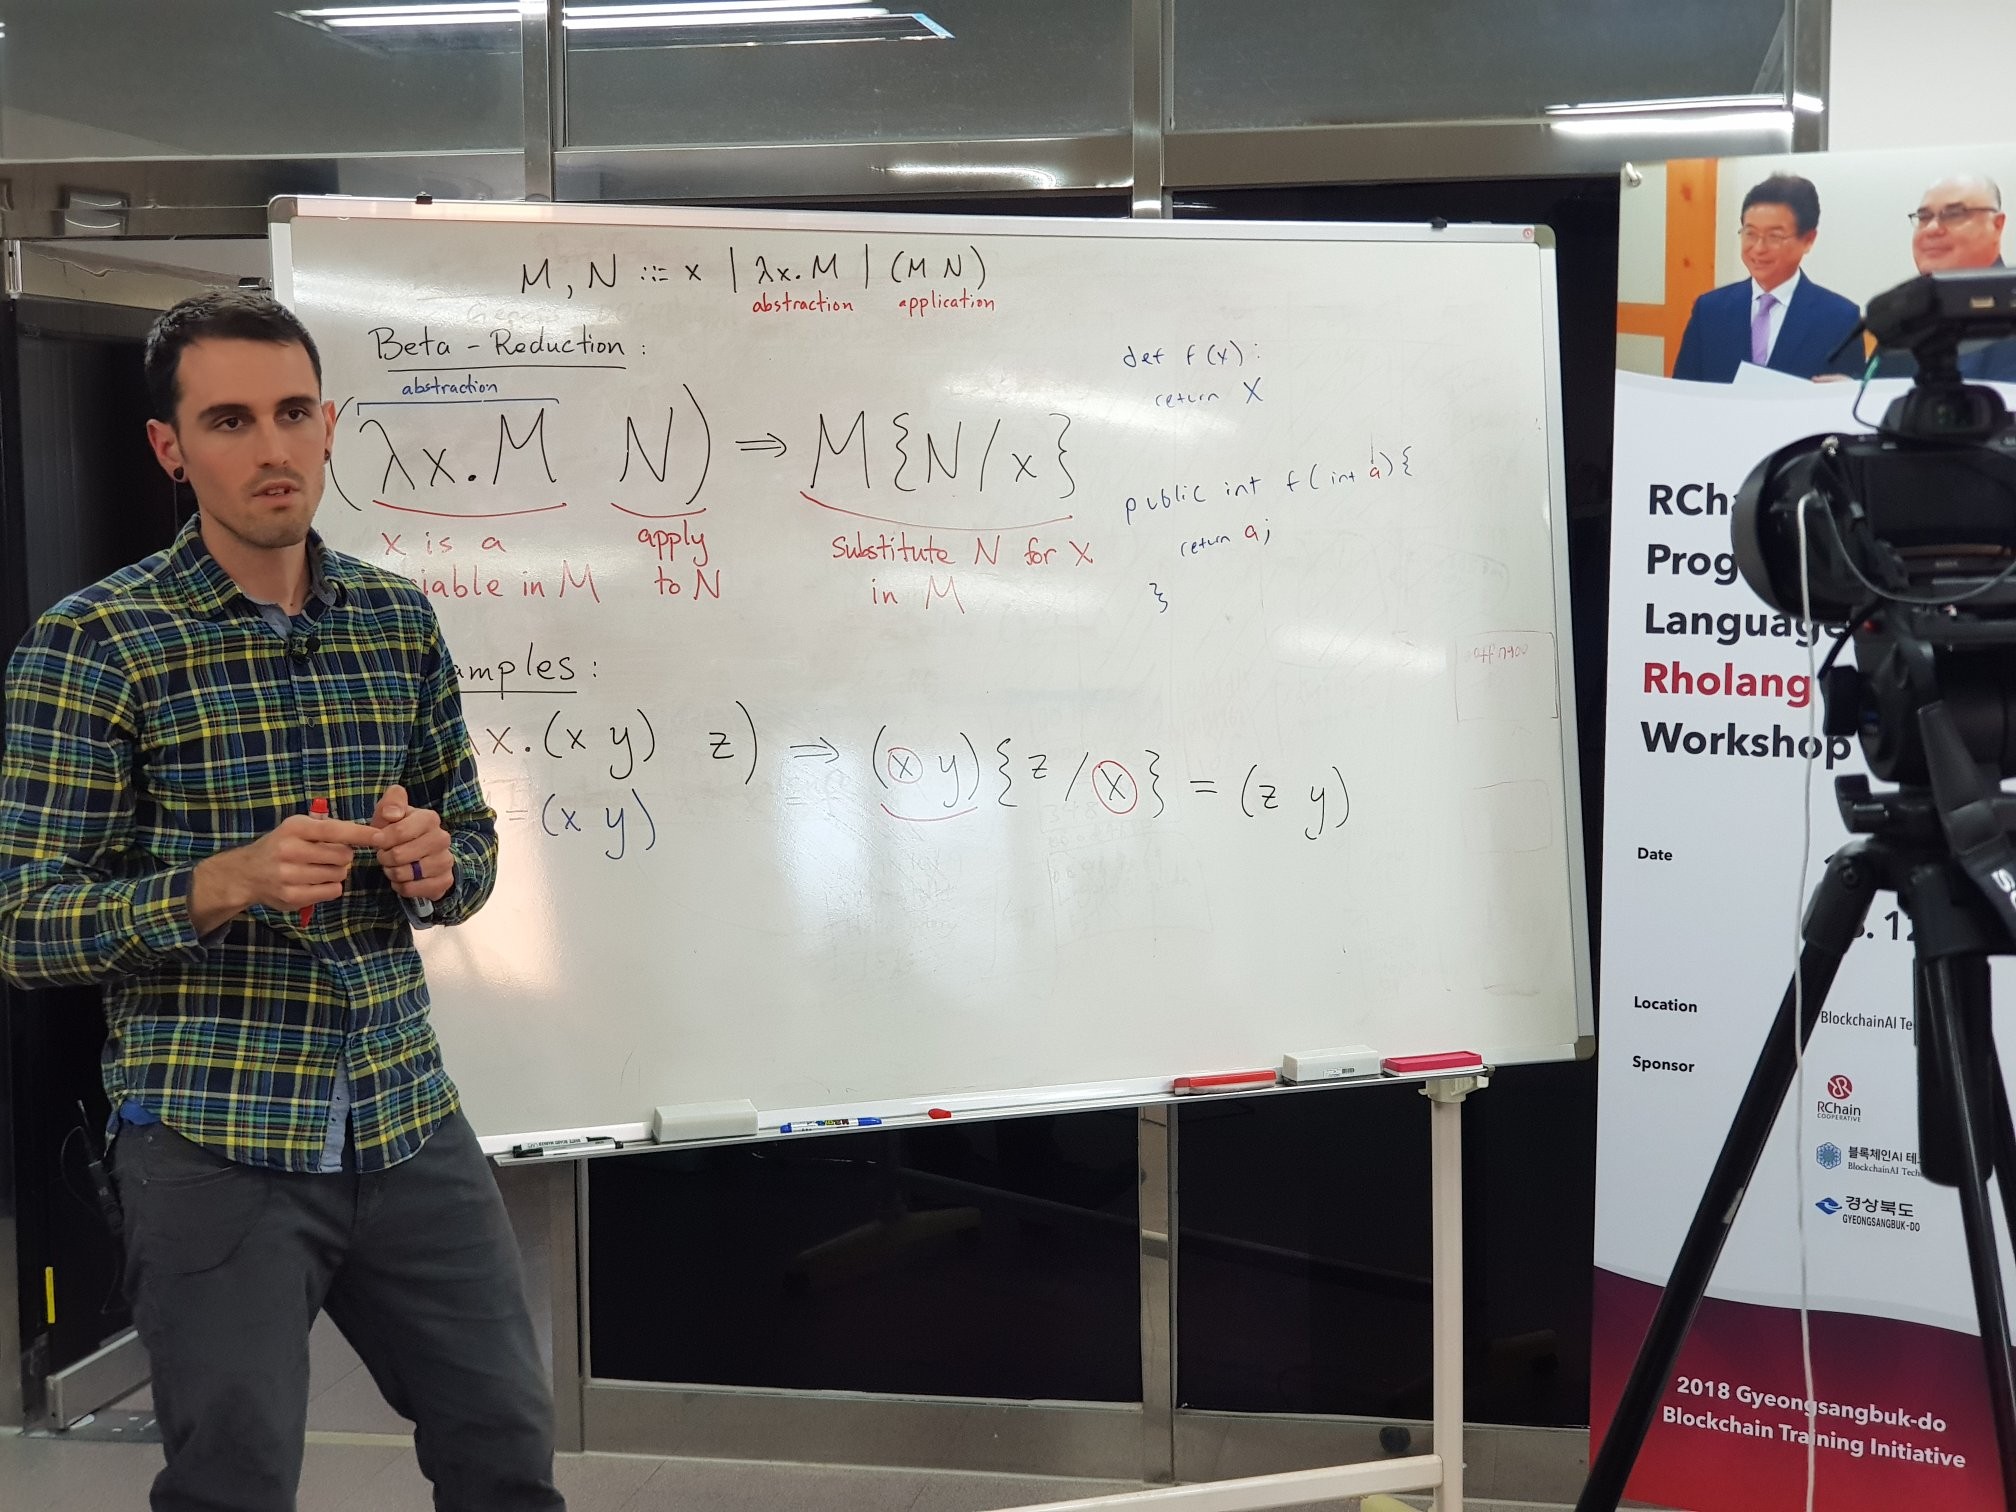 M, N ::= x | λx.M | (M N)
abstraction application
Beta - Reduction :
abstraction
(λx.M N) ⇒ M{N/x}
x is a
iable in M
apply
to N
Substitute N for x
in M
def f(x):
return X
public int f(int a){
return a;
}
amples :
λx.(x y) z) ⇒ (x y){z/x} = (z y)
= (x y)
RCh
Prog
Language
Rholang
Workshop
Date
. 12
Location
BlockchainAI Te
Sponsor
RChain
COOPERATIVE
블록체인AI 테
BlockchainAI Tech
경상북도
GYEONGSANGBUK-DO
2018 Gyeongsangbuk-do
Blockchain Training Initiative